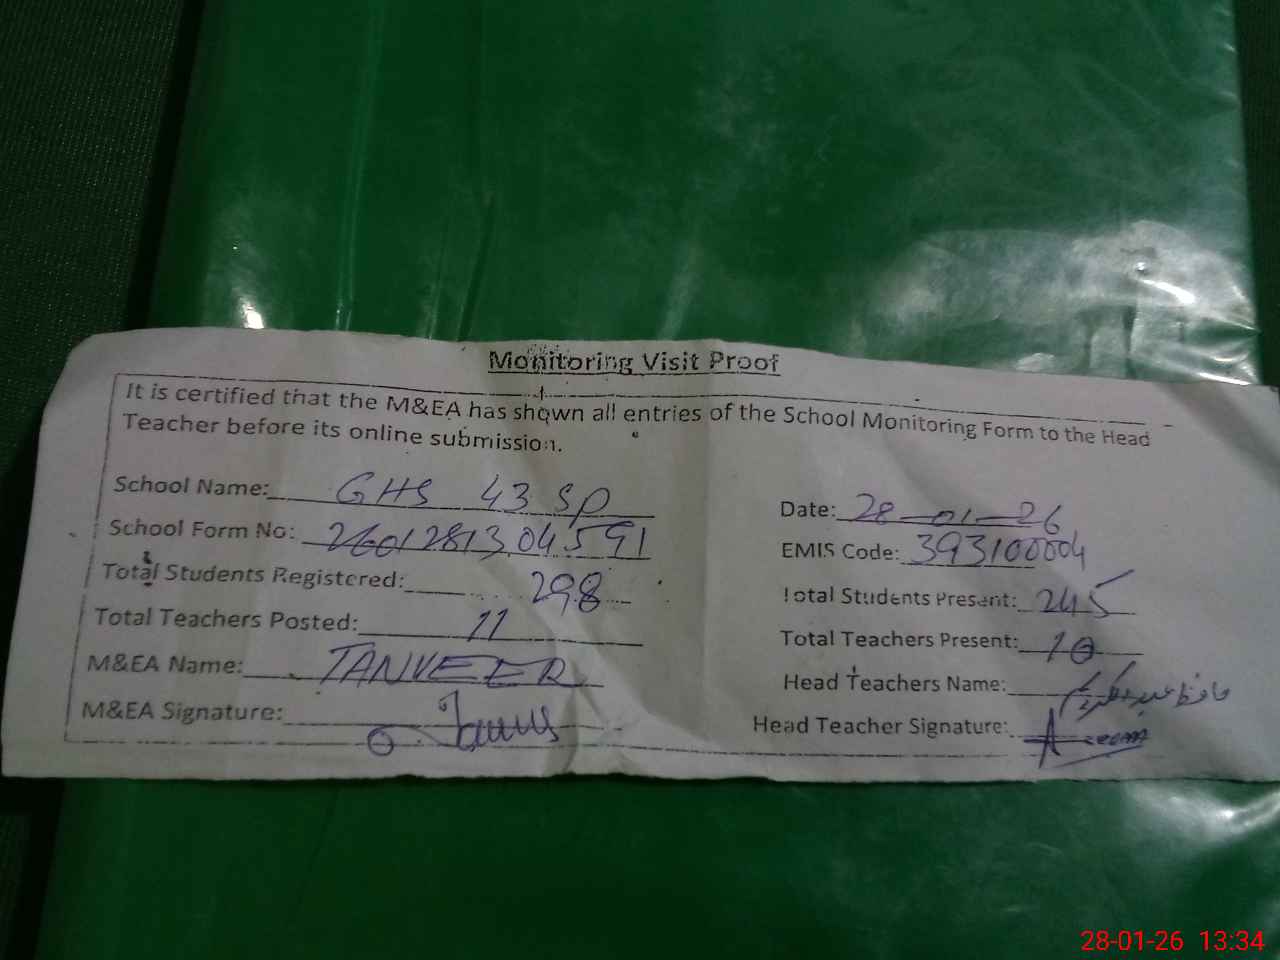 Monitoring Visit Proof
It is certified that the M&EA has shown all entries of the School Monitoring Form to the Head
Teacher before its online submission.
School Name: GHS 43 SP
Date: 28-01-26
School Form No: 2601281304591
EMIS Code: 393100004
Total Students Registered: 298
Total Students Present: 245
Total Teachers Posted: 11
Total Teachers Present: 10
M&EA Name: TANVEER
Head Teachers Name: حافظ
M&EA Signature:
Head Teacher Signature:
28-01-26 13:34